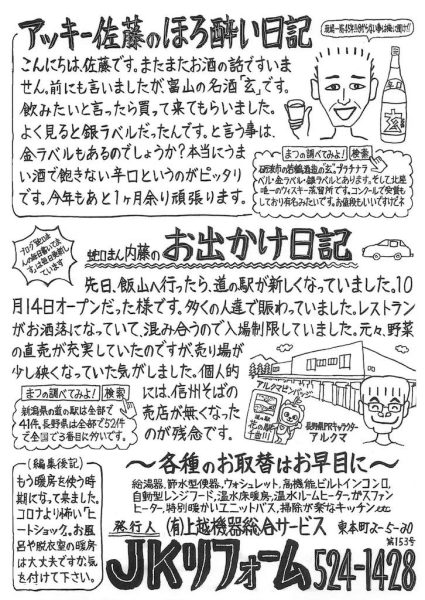 アッキー佐藤のほろ酔い日記
こんにちは、佐藤です。またまたお酒の話ですいま
せん。前にも言いましたが、富山の名酒「玄」です。
飲みたいと言ったら買って来てもらいました。
よく見ると銀ラベルだったんです。と言う事は、
金ラベルもあるのでしょうか?本当にうま
い酒で飽きない辛口というのがピッタリ
です。今年もあと1ヶ月余り頑張ります。
玄
まつの調べてみよ! 検索
ベル・金ラベル・銀ラベルとあります。そして北陸
唯一のウィスキー蒸留所です。コンクールで受賞も
しており有名みたいです。お値段もいいですけどネ
蛇口まん内藤のお出かけ日記
先日、飯山へ行ったら、道の駅が新しくなっていました。10
月14日オープンだった様です。多くの人達で賑わっていました。レストラン
がお洒落になっていて、混み合うので入場制限していました。元々、野菜
の直売が充実していたのですが、売り場が
少し狭くなっていた気がしました。個人的
には、信州そばの
売店が無くなった
のが残念です。
まつの調べてみよ! 検索
新潟県の道の駅は全部で
41件。長野県は全部で52件
で全国で3番目に多いです。
アルクマピンバッジ
道の駅
花の駅
千曲川
長野県PRキャラクター
アルクマ
(編集後記)
もう暖房を使う時
期になって来ました。
コロナより怖い"ヒ
ートショック。お風
呂や脱衣室の暖房
は大丈夫ですか。気
を付けて下さい。
~各種のお取替はお早目に~
給湯器、節水型便器、ウォシュレット、高機能ビルトインコンロ、
自動型レンジフード、温水床暖房、温水ルームヒーター、ガスファン
ヒーター、特別暖かいユニットバス、掃除が楽なキッチン、etc
発行人 (有)上越機器総合サービス 東本町2-5-20
第153号
JKリフォーム 524-1428